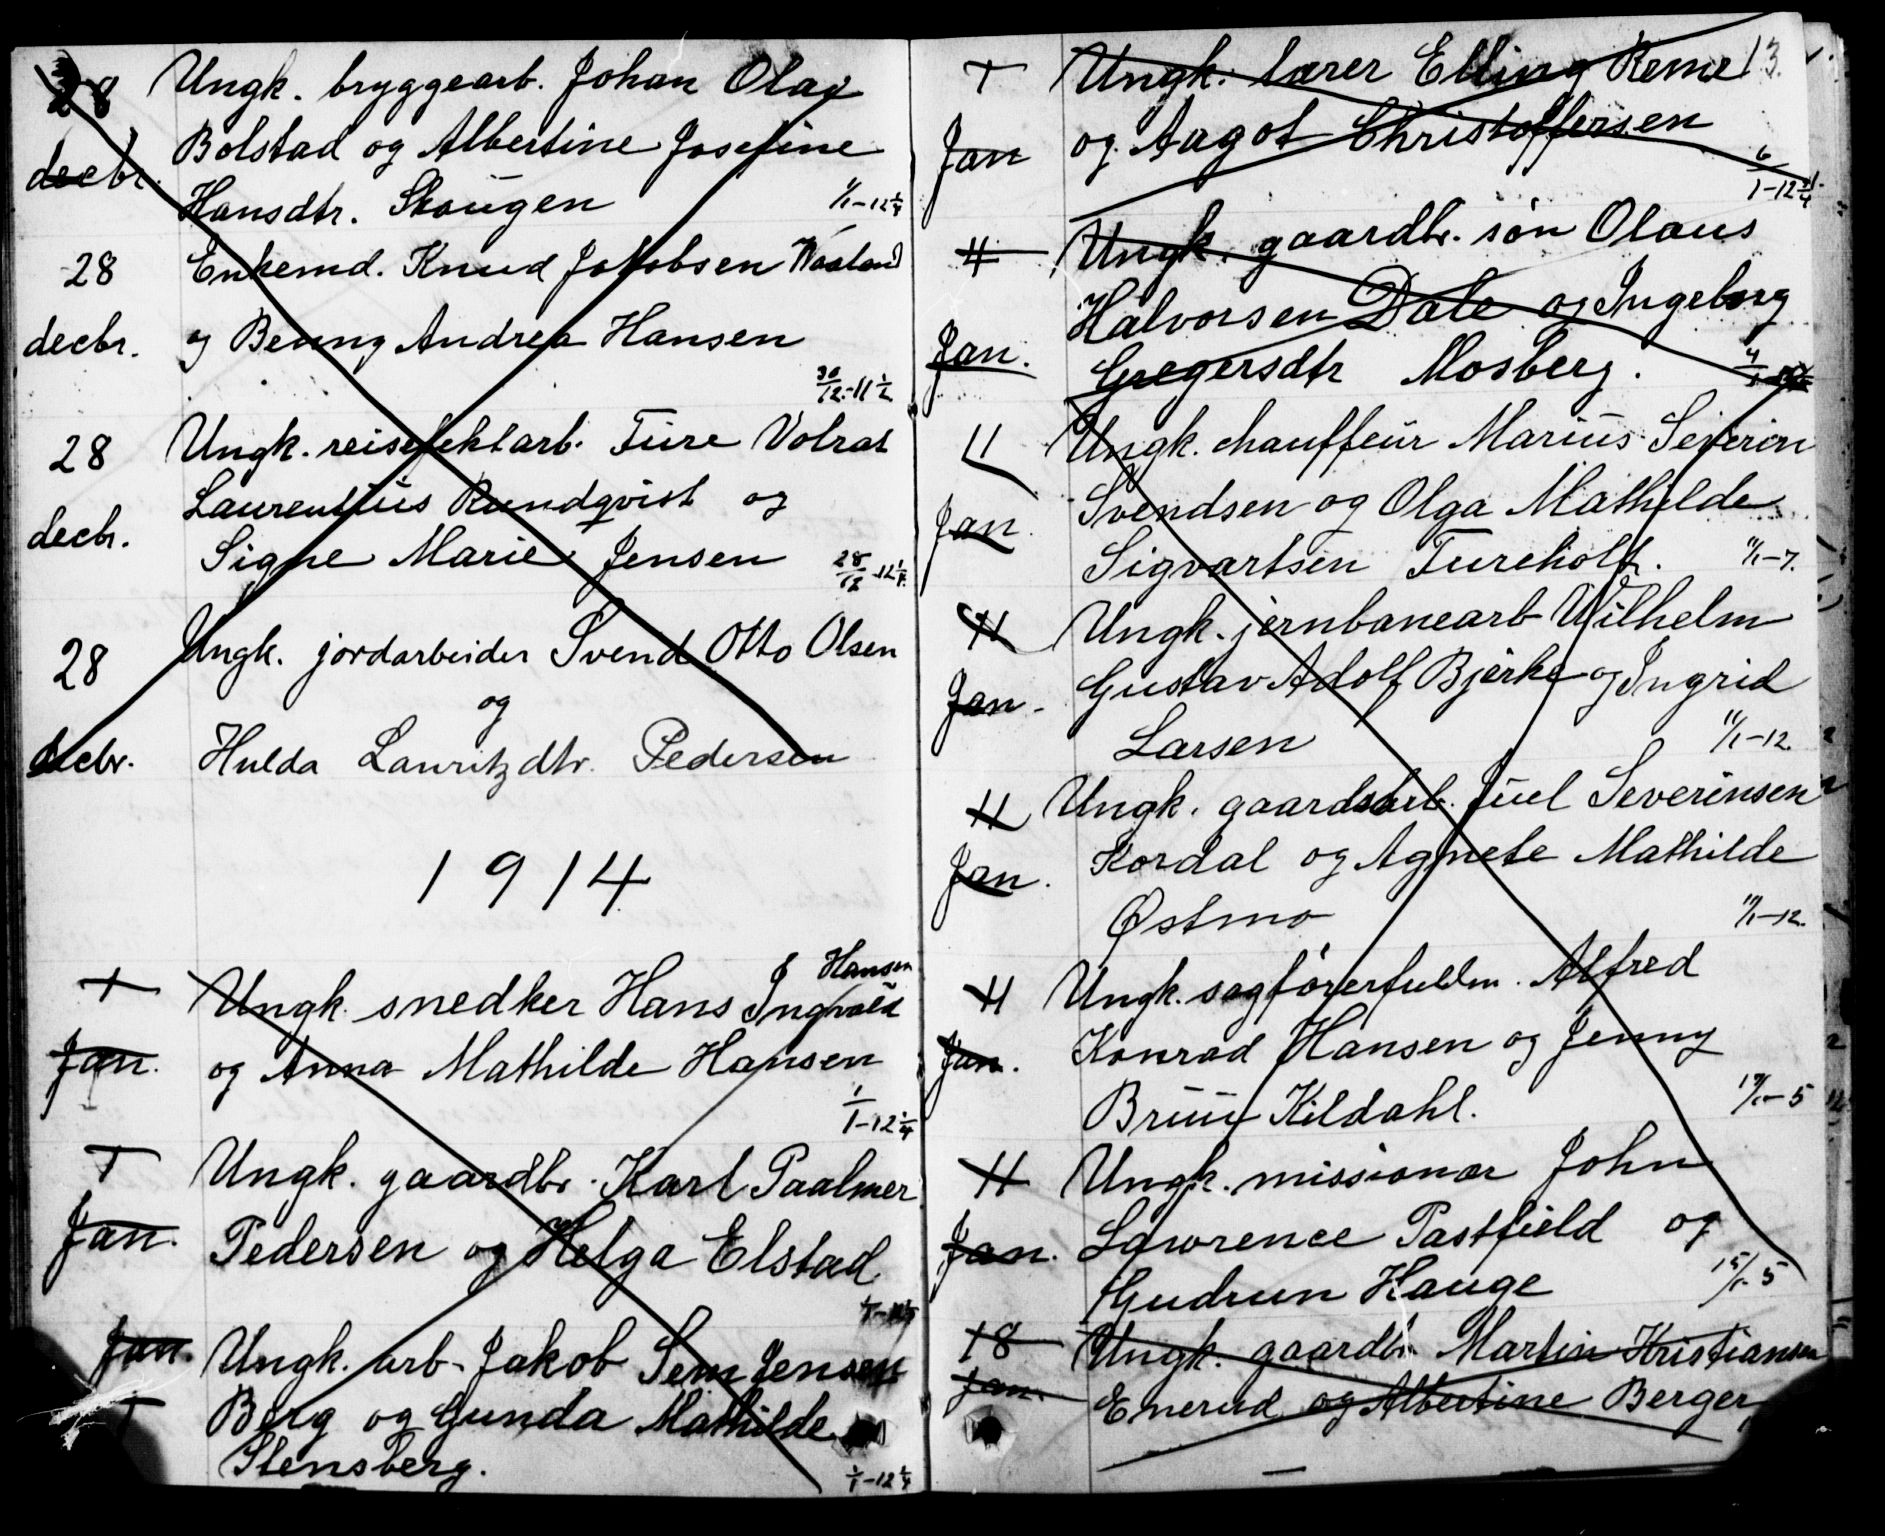 28 Ungk. bryggearb. Johan Olaf
decbr. Bolstad og Albertine Josefine
Hansdtr. Skougen 1/1-12 1/4
28 Enkemd. Knud Jakobsen
decbr. og Andrea Hansen
30/12-11 1/2
28 Ungk. reisefektarb. Ture Volrat
Laurentius Rundqvist og
decbr. Signe Marie Jensen 28/12-12 1/4
28 Ungk. jordarbeider Svend Otto Olsen
og
decbr. Hulda Lauritzdtr. Pedersen
1914
Hansen
1 Ungk. snedker Hans Ingvald
Jan. og Anna Mathilde Hansen
1/1-12 1/4
1 Ungk. gaardbr. Karl Paalmer
Jan. Pedersen og Helga Elstad
Jan. Ungk. arb. Jakob Sem Jensen
1 Berg og Gunda Mathilde
Stensberg.
1/1-12 1/4
13.
1 Ungk. lærer Elling Reme
Jan og Aagot Christoffersen
6/1-12
4 Ungk. gaardbr. søn Olaus
Halvorsen Dale og Ingeborg
Jan. Gregersdtr Mosberg. 4/1
11 Ungk. chauffeur Marius Severin
Jan Svendsen og Olga Mathilde
Sigvartsen Tureholt. 11/1-7.
11 Ungk. jernbanearb Wilhelm
Jan. Gustav Adolf Bjerke og Ingrid
Larsen 11/1-12.
11 Ungk. gaardsarb. Juel Severinsen
Jan. Kordal og Agnete Mathilde
Østmo 11/1-12.
11 Ungk. sagførerfuldm. Alfred
Jan. Konrad Hansen og Jenny
Bruu Kildahl. 5
11 Ungk. missionær John
Jan. Lawrence Pastfield og
Gudrun Hauge 15/1-5
18 Ungk. gaardbr. Martin Kristiansen
Jan. Enerud og Albertine Berger